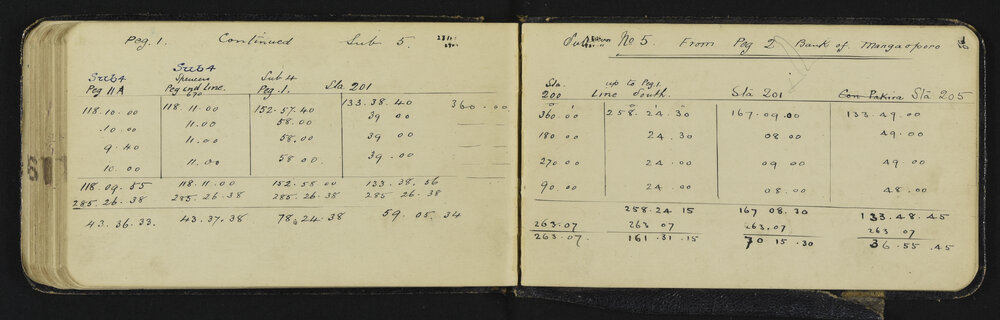 Peg. 1. Continued Sub 5.
Sub 4 Sub 4 Sub 4 Sta 201
Peg 11A Spencers Peg 1.
Peg end Line.
118.10.00 118.11.00 152.57.40 133.38.40 360.00
.10.00 11.00 58.00 39 00
9.40 11.00 58.00 39 00
10.00 11.00 58 00 39.00
118.09.55 118.11.00 152.58 00 133.38.56
285.26.38 285.26.38 285.26.38 285 26.38
43.36.33. 43.37.38 78.24.38 59.05.34
No 5. From Peg 2 Bank of Mangaoporo
Sta. up to Peg 1. Sta 201 Con Pakira Sta 205
200 Line South.
o ' o ' "
360.00 258.24.30 167.09.00 133.49.00
180 00 24.30 08.00 49.00
270 00 24.00 09 00 49 00
90 00 24.00 08.00 48.00
258.24 15 167 08.30 133.48.45
263.07 263 07 263.07 263 07
263.07. 161.31.15 70 15.30 36.55.45